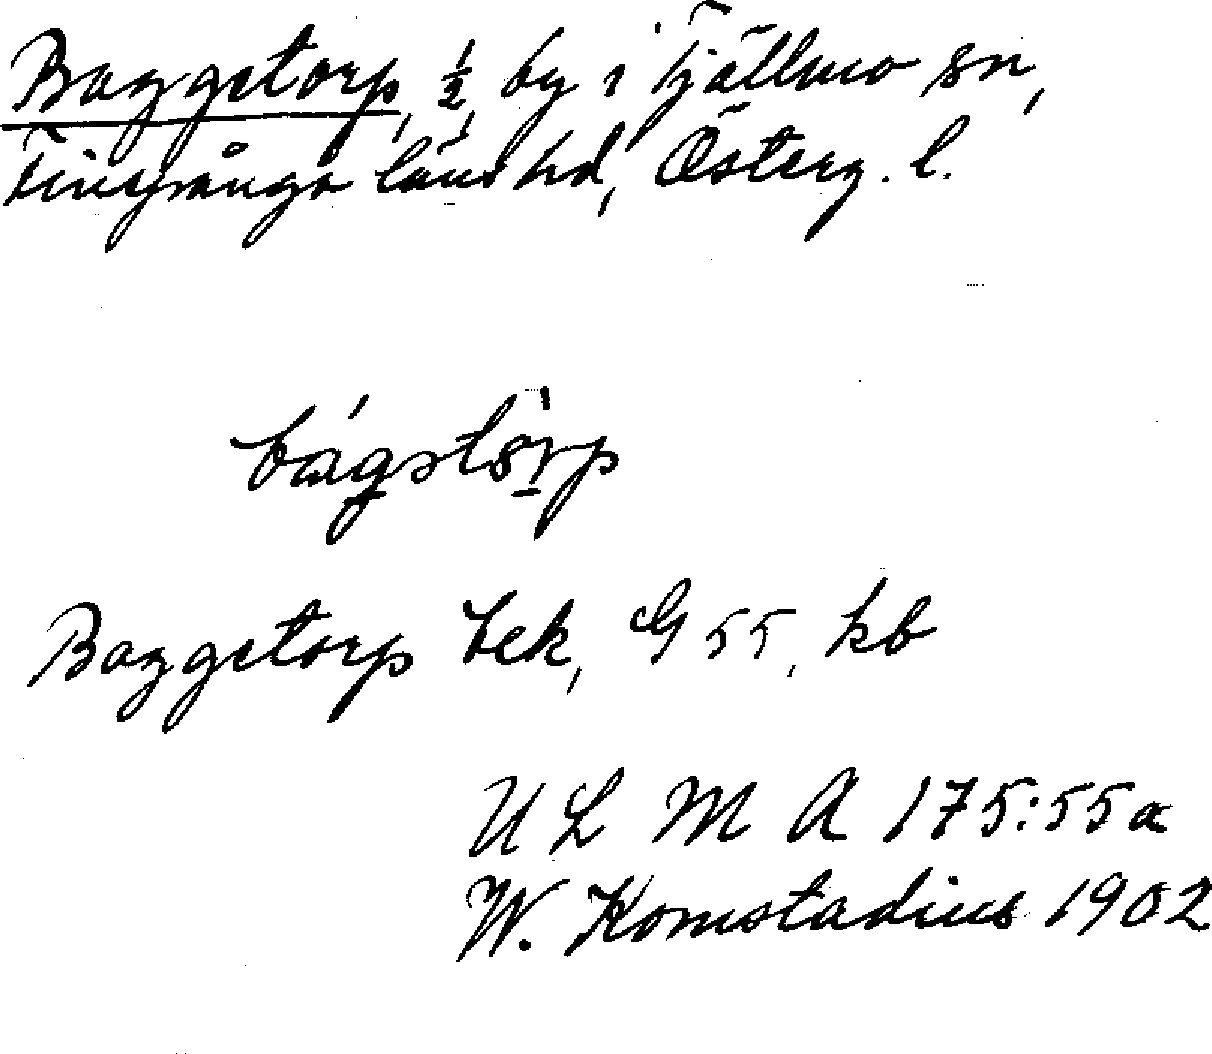 Baggetorp, ½, by i Tjällmo sn,
Finspånga läns hd, Österg. l.
bágstörp
Baggetorp bek, G 55, kb
U L M A 175:55a
W. Komstadius 1902